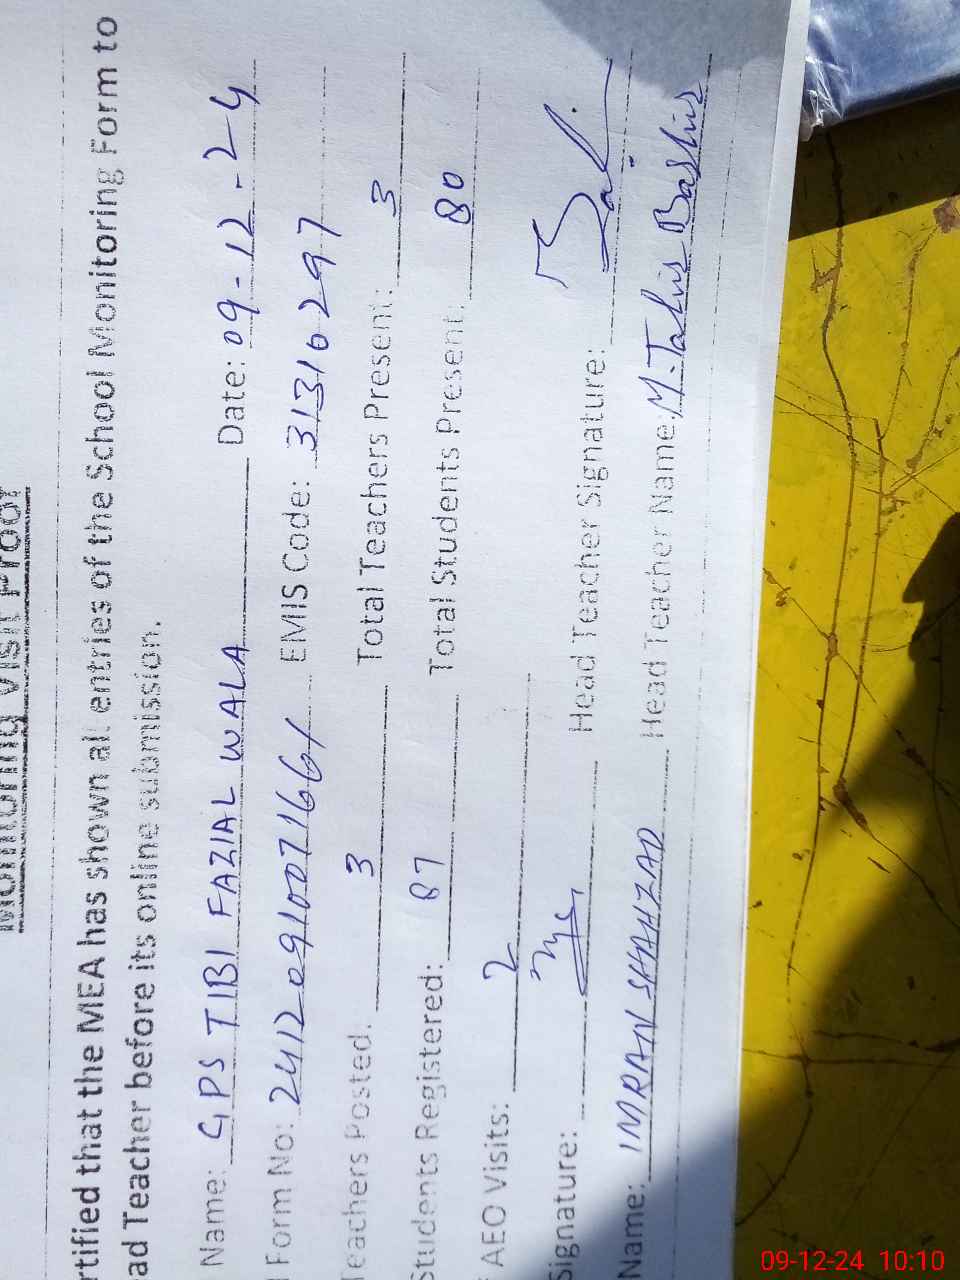 Monitoring Visit Proof
rtified that the MEA has shown all entries of the School Monitoring Form to
ead Teacher before its online submission.
Name: GPS TIBI FAZIAL WALA Date: 09-12-24
Form No: 241209100716661 EMIS Code: 31310297
Teachers Posted: 3 Total Teachers Present: 3
Students Registered: 87 Total Students Present: 80
AEO Visits: 2
Signature: Head Teacher Signature:
Name: IMRAN SHAHZAD Head Teacher Name: M. Tahir Bashir
09-12-24 10:10